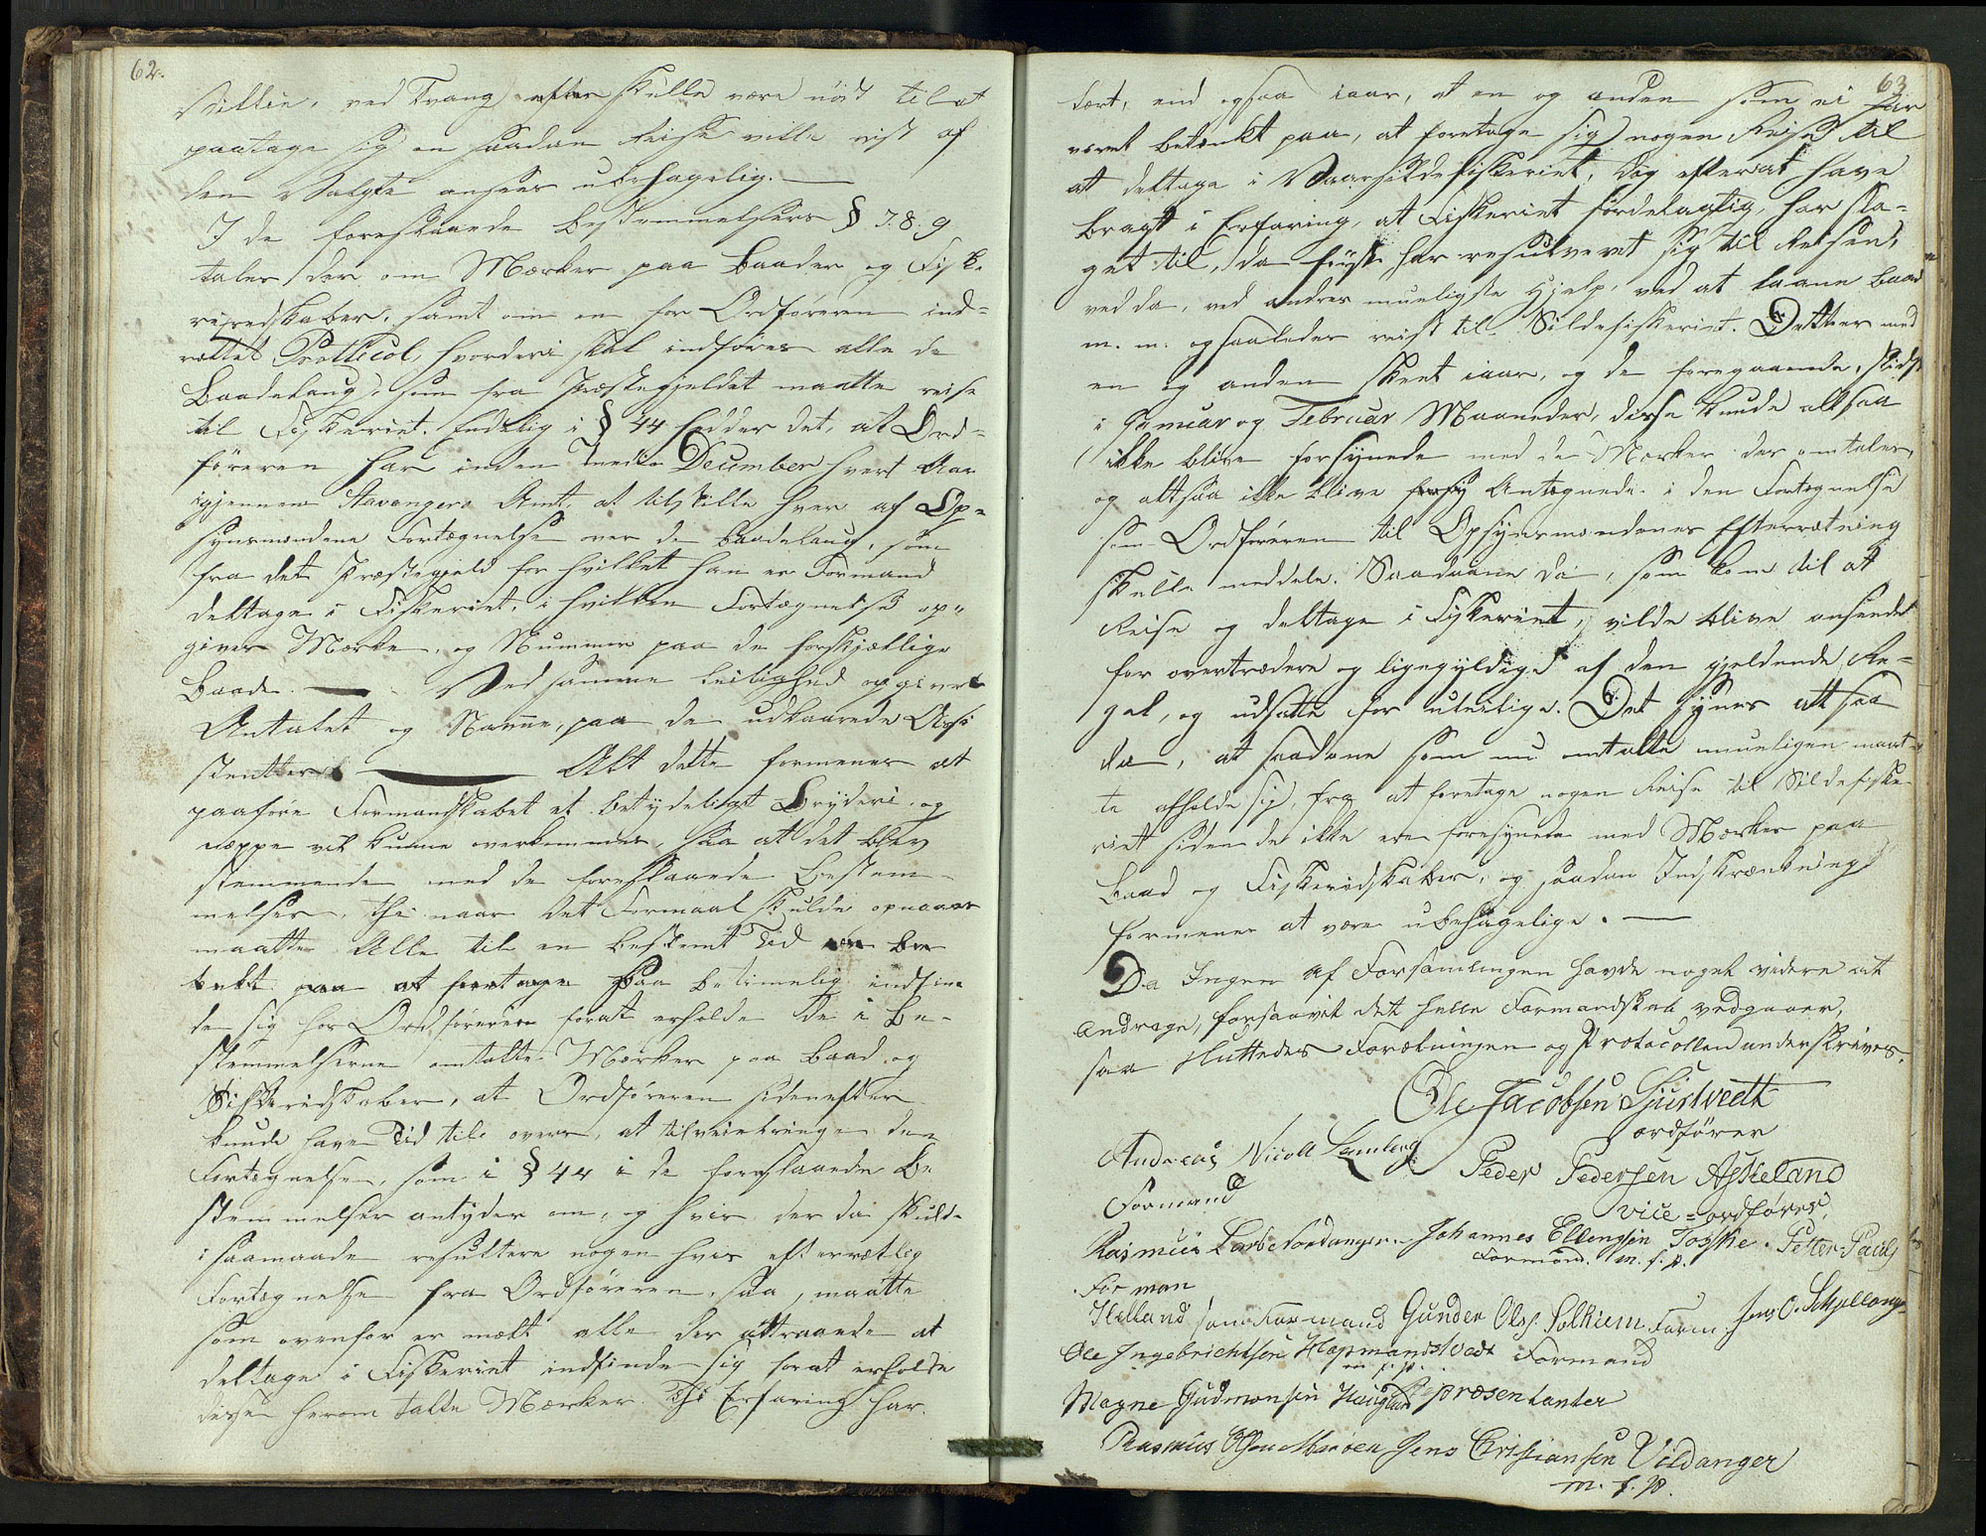 62.
villie, ved Tvang efter skulle være nödt til at
paatage sig en saadan Reise ville vist af
den Valgte ansees ubehagelig. —
I de foreslaaende Bestemmelsers § 7. 8. 9
tales der om Mærker paa Baader og Fiske-
riredskaber, samt om en for Ordföreren ind-
rættet Prottecol, hvorderi skal indföres alle de
Baadelaug, som fra Præstegjeldet maatte reise
til Fiskeriet. Endelig i § 44 hedder det, at Ord-
föreren har inden Medio December hvert Aar
igjennem Stavangers Amt at tilstille hver af Op-
synsmændene Fortegnelse over de Baadelaug, som
fra det Præstegjeld for hvilket han er Formand
deltage i Fiskeriet, i hvilken Fortægnelse op-
gives Mærke, og Nummer paa de forskjællige
Baade. — Ved samme Leilighed opgives
Antalet og Navne, paa de udkaarede Assi
stentter — Alt dette formenes at
paaföre Formandskabet et betydeligt Bryderi og
næppe vil kunne overkommes, saa at det blev
stemmende med de foreslaaende Bestem-
melser, thi naar det Formaal skulde opnaaes
maatte Alle til en bestemt Tid være be
tækt paa at foretage saa betimelig indfin-
de sig hos Ordföreren forat erholde de i Be-
stemmelserne omtalte Mærker paa Baad og
Fiskeridskaber, at Ordföreren sidenefter
kunde have Tid tilovers, at tilveiebringe den
Fortegnelse, som i § 44 i de foreslaaende Be
stemmelser antydes om, og hvis der da skulde
i saamaade resultere nogen hvis efterrætlig
Fortegnelse fra Ordföreren, saa, maatte
som ovenfor er mælt alle der attraaede at
deltage i Fiskeriet indfinde sig forat erholde
disse herom talte Mærker. Thi Erfaring har
63
lært, end ogsaa iaar, at en og anden som ei har
været betænkt paa, at foretage sig nogen Reise til
at deltage i Vaarsildefiskeriet, dog efterat have
bragt i Erfaring, at Fiskeriet fördelagtig, har sla-
get til, da först har resulveret sig til Reisen,
ved da, ved andres mueligste Hjelp, ved at laane Baad
m. m. og saaledes reist til Sildefiskeriet. Dette er med
en og anden skeet iaar, og de foregaaende, sidst
i Januar og Februar Maaneder, disse kunde altsaa
ikke blive forsynede med de Mærker der omtales,
og altsaa ikke blive forsy Antegnede i den Fortegnelse
som Ordföreren til Opsynsmændenes Efterrætning
skulle meddele. Saadanne da, som kom til at
Reise og deltage i Fiskeriet, vilde blive ansende
for overtrædere og ligegyldige af den gjeldende Re-
gel, og udsatte for uleilige. Det synes altsaa
da, at saadane som nu omtalte mueligen maat-
te afholde sig, fra at foretage nogen Reise til Sildefiske-
riet siden de ikke ere foresynede med Mærker paa
Baad og Fiskeridskaber, og saadan Indskrænkning
formenes at være ubehagelige. —
Da Ingen af Forsamlingen havde noget videre at
Andrage, forsaavit det hele Formandskab vedgaaer,
saa sluttedes Forætningen og Protocollen underskrives.
Ole Jacobsen Gjuslvedt
ordförer
Andreas Nicolt Lamberg
Formand
Peder Pedersen Askeland
vice=ordförer,
Rasmus Larsen Nordanger. Johannes Ellengsen Toske. Petter Pauls
Forman Formand. m. f. p.
Helland som Formand Gunder Ols. Solhiem Form Jens O. Schjellang
Ole Ingebrichtsen Hopmandstvedt Formand
m. f. p.
Magne Gudmonsen Haugland Repræsentanter
Rasmus Olsen Maröen Jens Cristiansen Vildanger
m. f. p.